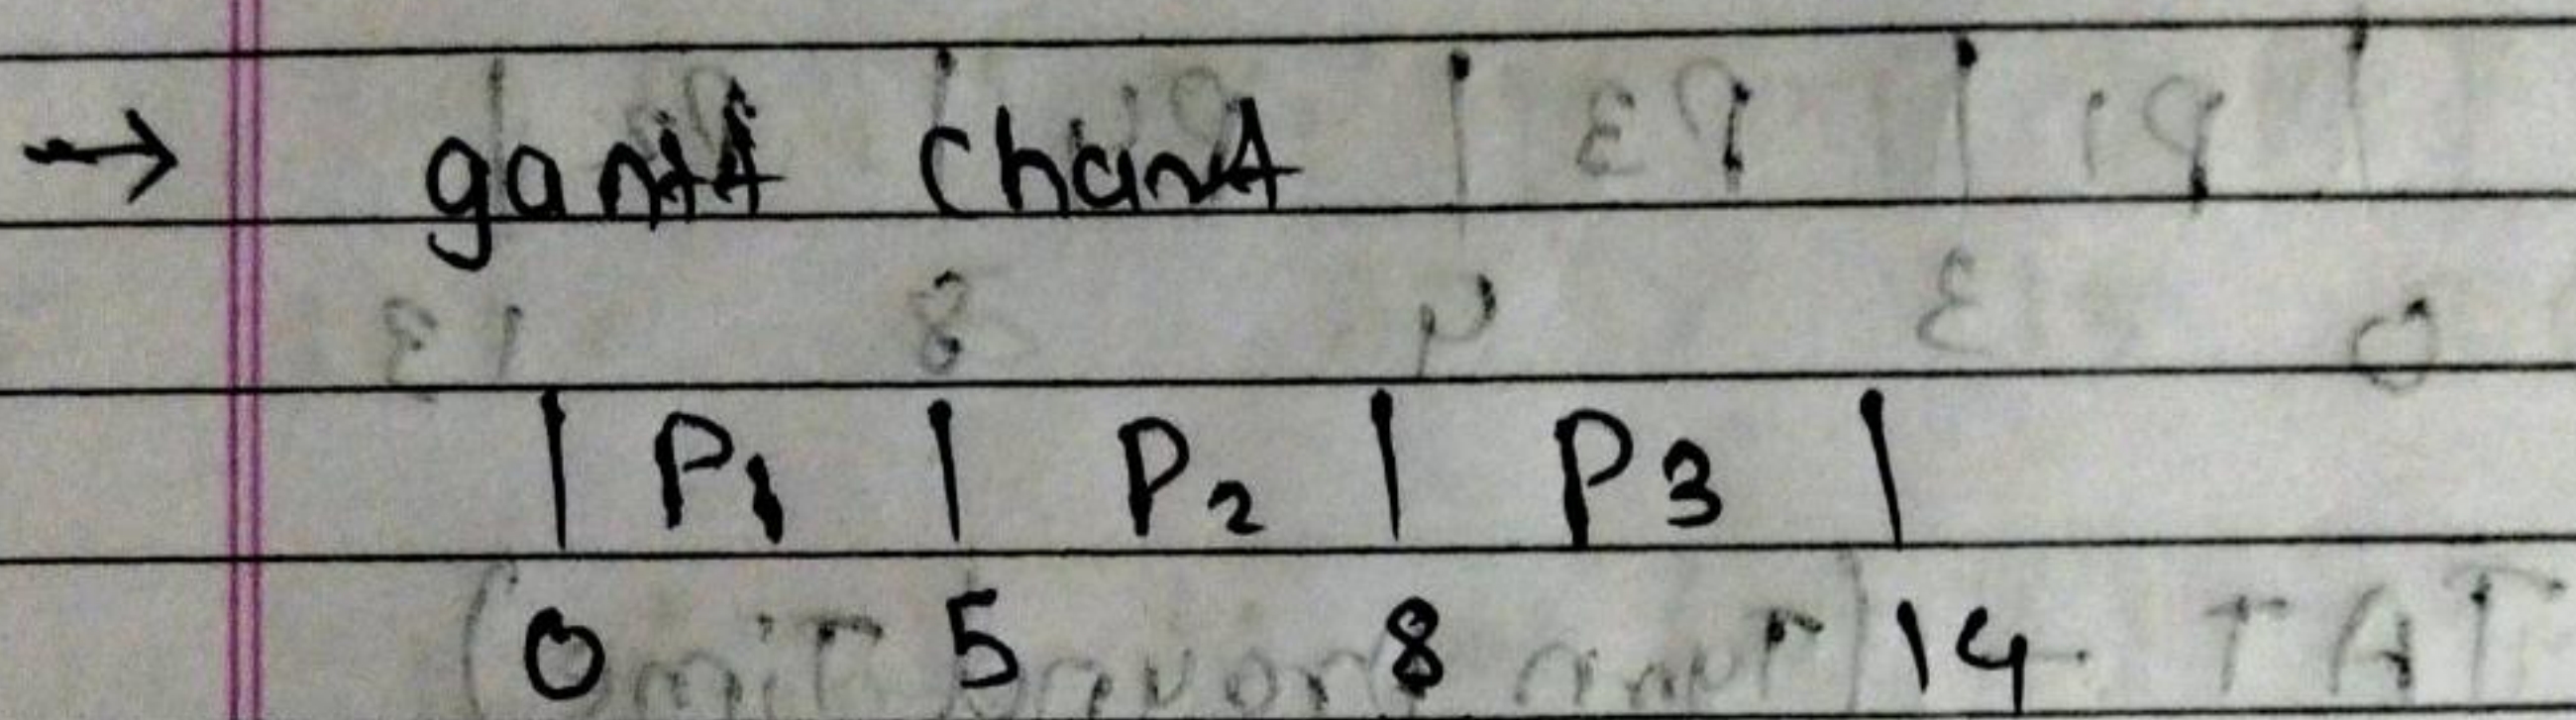 → gantt chart
| P1 | P2 | P3 |
0 5 8 14